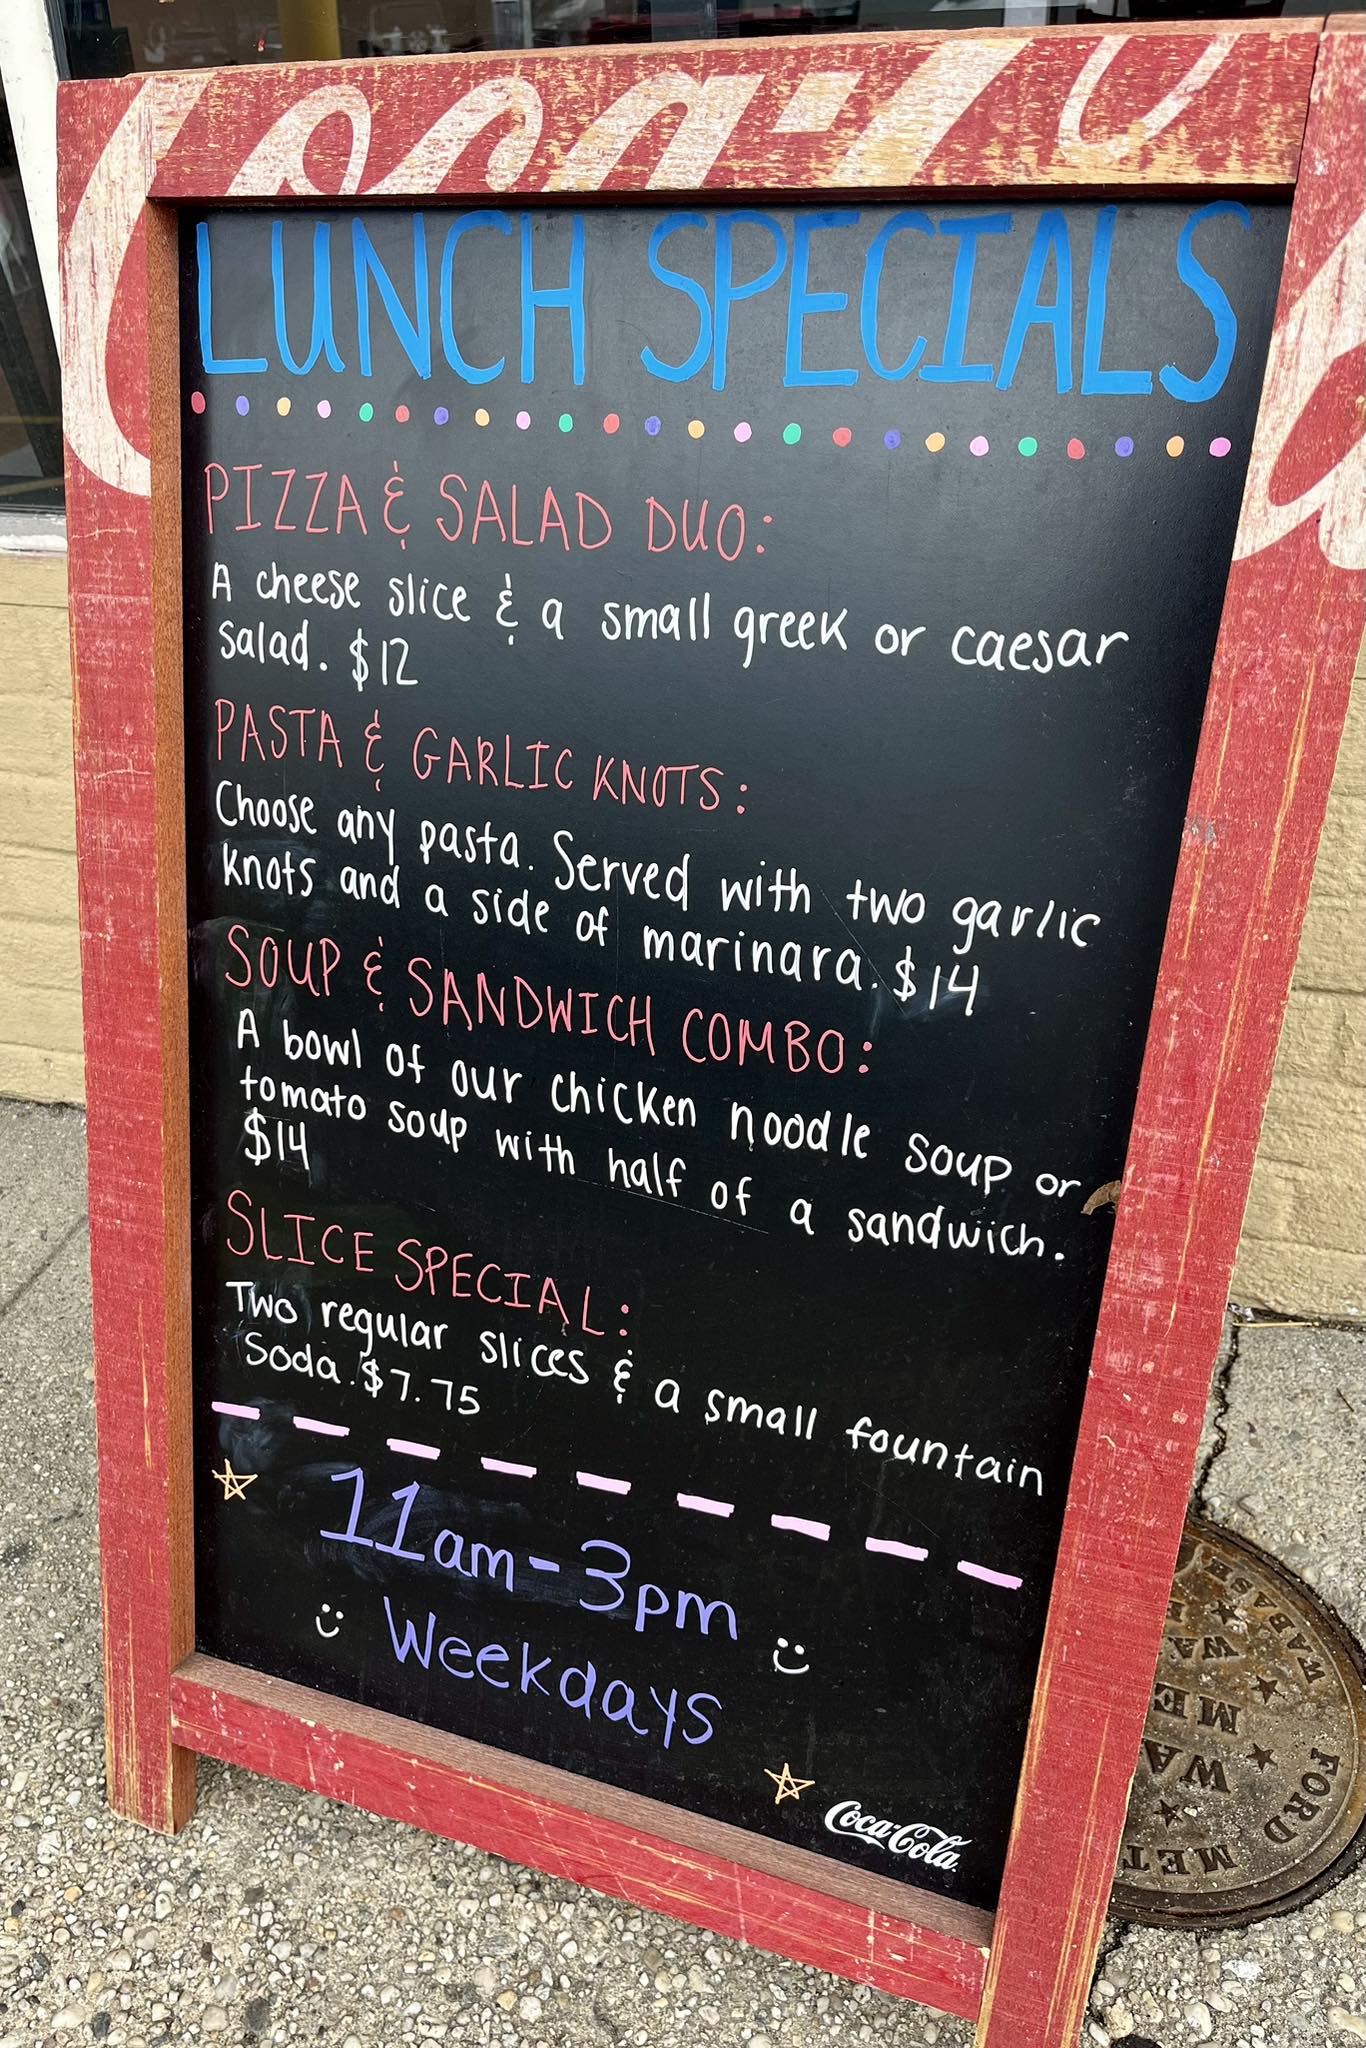 Coca-Cola
LUNCH SPECIALS
PIZZA & SALAD DUO:
A cheese slice & a small greek or caesar
salad. $12
PASTA & GARLIC KNOTS:
Choose any pasta. Served with two garlic
knots and a side of marinara. $14
SOUP & SANDWICH COMBO:
A bowl of our chicken noodle soup or
tomato soup with half of a sandwich.
$14
SLICE SPECIAL:
Two regular slices & a small fountain
Soda. $7.75
11am-3pm
Weekdays
Coca-Cola
FORD
WABASH